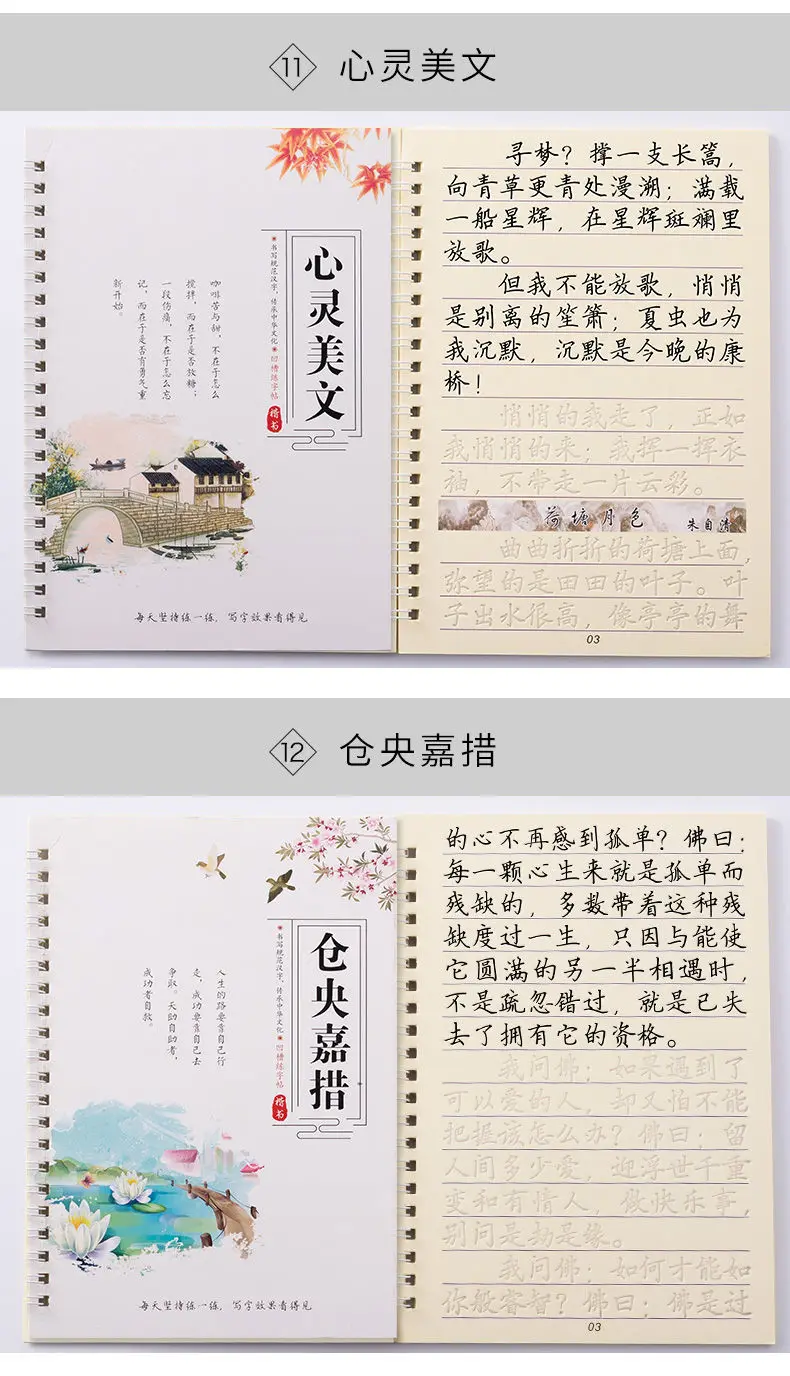 11 心灵美文
心灵美文
书写规范汉字，传承中华文化
凹槽练字帖
楷书
咖啡苦与甜，不在于怎么
搅拌，而在于是否放糖；
一段伤痛，不在于怎么忘
记，而在于是否有勇气重
新开始。
每天坚持练一练，写字效果看得见
寻梦？撑一支长篙，
向青草更青处漫溯；满载
一船星辉，在星辉斑斓里
放歌。
但我不能放歌，悄悄
是别离的笙箫；夏虫也为
我沉默，沉默是今晚的康
桥！
悄悄的我走了，正如
我悄悄的来；我挥一挥衣
袖，不带走一片云彩。
荷塘月色 朱自清
曲曲折折的荷塘上面，
弥望的是田田的叶子。叶
子出水很高，像亭亭的舞
03
12 仓央嘉措
仓央嘉措
书写规范汉字，传承中华文化
凹槽练字帖
楷书
人生的路要靠自己行
走，成功要靠自己去
争取。天助自助者，
成功者自救。
每天坚持练一练，写字效果看得见
的心不再感到孤单？佛曰：
每一颗心生来就是孤单而
残缺的，多数带着这种残
缺度过一生，只因与能使
它圆满的另一半相遇时，
不是疏忽错过，就是已失
去了拥有它的资格。
我问佛：如果遇到了
可以爱的人，却又怕不能
把握该怎么办？佛曰：留
人间多少爱，迎浮世千重
变和有情人，做快乐事，
别问是劫是缘。
我问佛：如何才能如
你般睿智？佛曰：佛是过
03